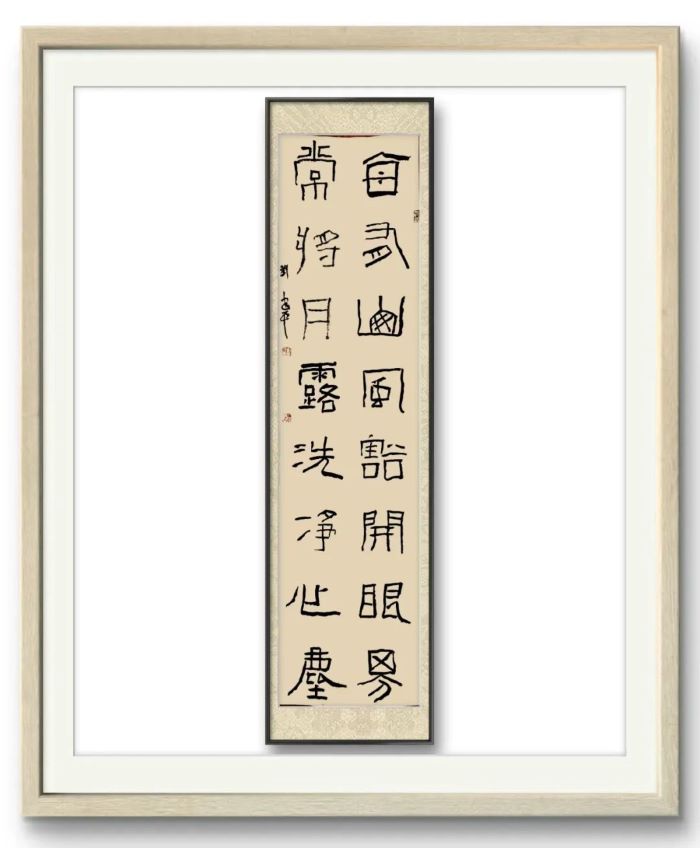 每有幽風豁開眼界
常將月露洗净心塵